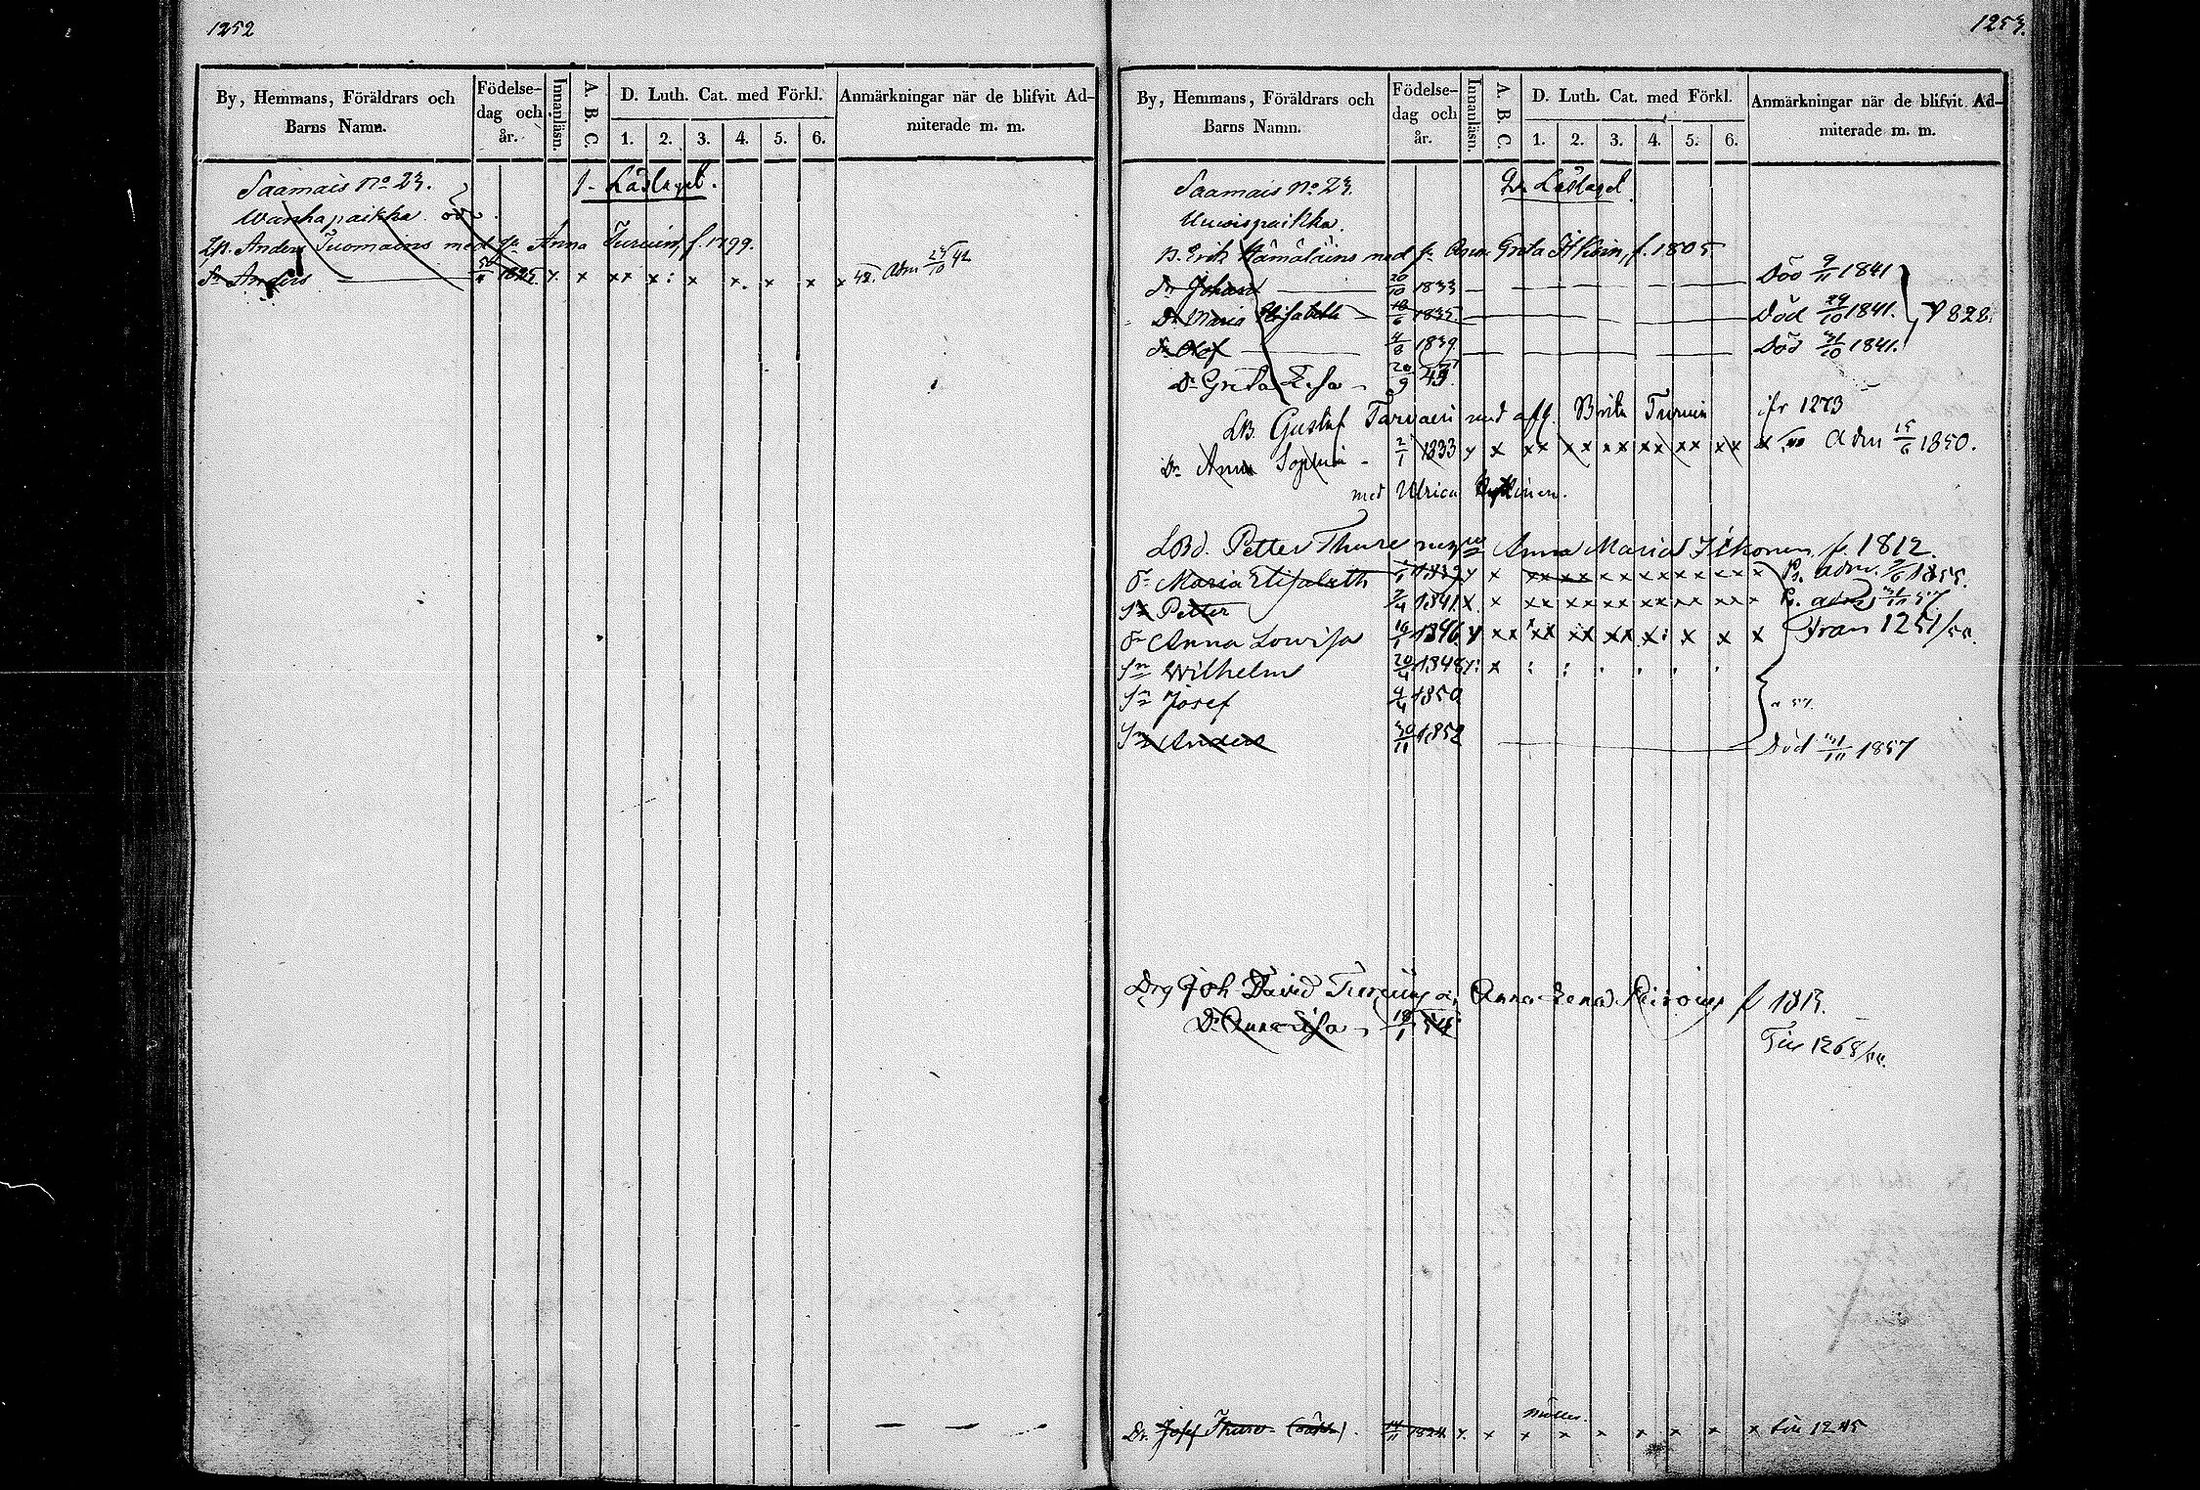 1252
By, Hemmans, Föräldrars och Barns Namn.
Födelse-dag och år.
Innanläsn.
A. B. C.
D. Luth. Cat. med Förkl.
1. 2. 3. 4. 5. 6.
Anmärkningar när de blifvit Admiterade m. m.
Saamais No 23.
1. Läslaget.
Wanhapaikka
Anders Tuomains med hu Anna Turuin, f. 1799.
Sn Anders 1825. x x xx x: x x. x x x 42. adm 24/10 42
1253.
By, Hemmans, Föräldrars och Barns Namn.
Födelse-dag och år.
Innanläsn.
A. B. C.
D. Luth. Cat. med Förkl.
1. 2. 3. 4. 5. 6.
Anmärkningar när de blifvit Admiterade m. m.
Saamais No 23.
Läslaget
Uuwispaikka.
B. Erik Hämäläins med hu Anna Greta Itkoin, f. 1805.
Sn Johan 20/10 1833 Död 9/11 1841
Dr Maria Elisabeth 18/6 1835 Död 29/10 1841. 828.
Sn Olof 4/8 1839. Död 31/10 1841.
Dr Greta Lisa 20/9 43.
LB. Gustaf Tarvain med afg. Brita Turuin ifr 1273
Dr Anna Sophia 2/1 1833 x x xx xx xx xx xx xx x Adm 15/6 1850.
med Ulrica
LBd. Petter Thure Anna Maria Itkonen f. 1812.
Dr Maria Elisabeth 1839 x x xx xx xx xx xx xx x adm. 1855.
Sn Petter 2/4 1841 x. x xx xx xx xx xx xx x 57
Dr Anna Lowisa 16/1 1846 x xx xx xx xx x: x x x från 1251/55.
Sn Wilhelm 20/4 1848 x: x : : . . . .
Sn Josef 4/4 1850. 57.
Sn Anders 30/11 1852 Död 1857
Drg Joh David Turuin Anna Lena f 1813.
Dr Anna Lisa 18/1 54
Till 1268/55.
Dr. Josef Thure 14/11 1824 x. x x x x x x x x till 1245